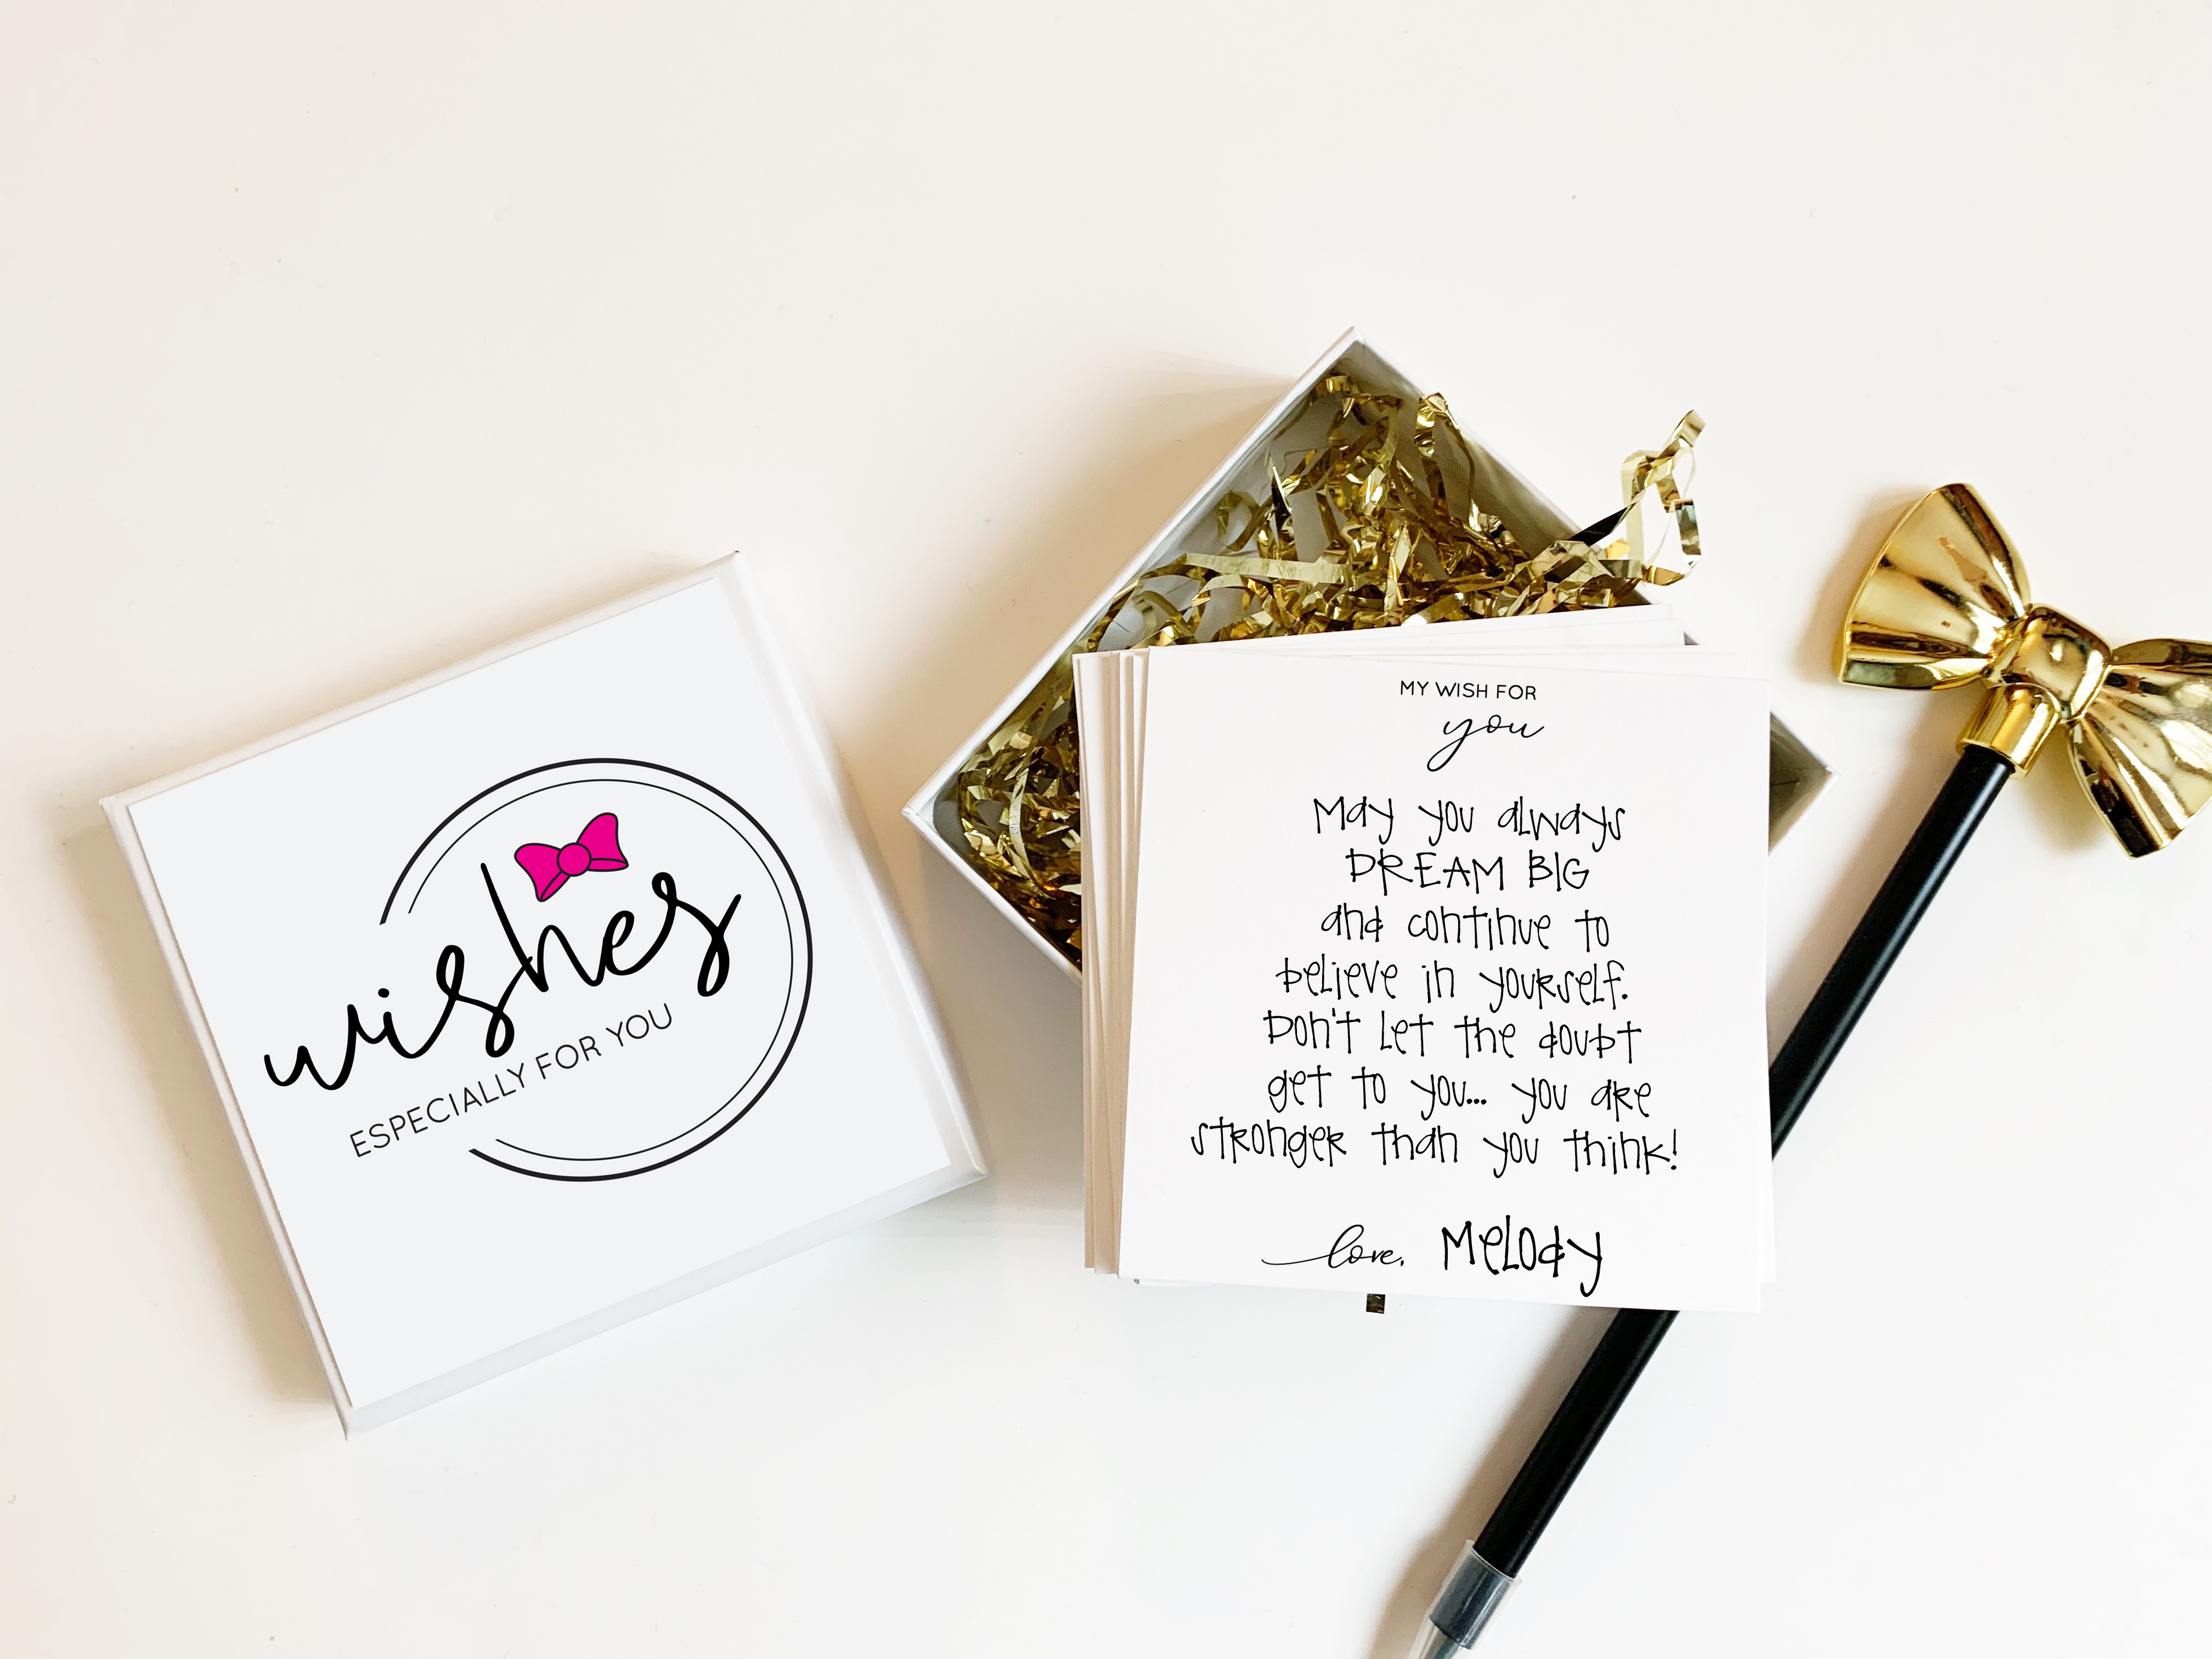 wishes
ESPECIALLY FOR YOU
MY WISH FOR
you
May you always
DREAM BIG
and continue to
believe in yourself.
Don't let the doubt
get to you... you are
stronger than you think!
love, Melody